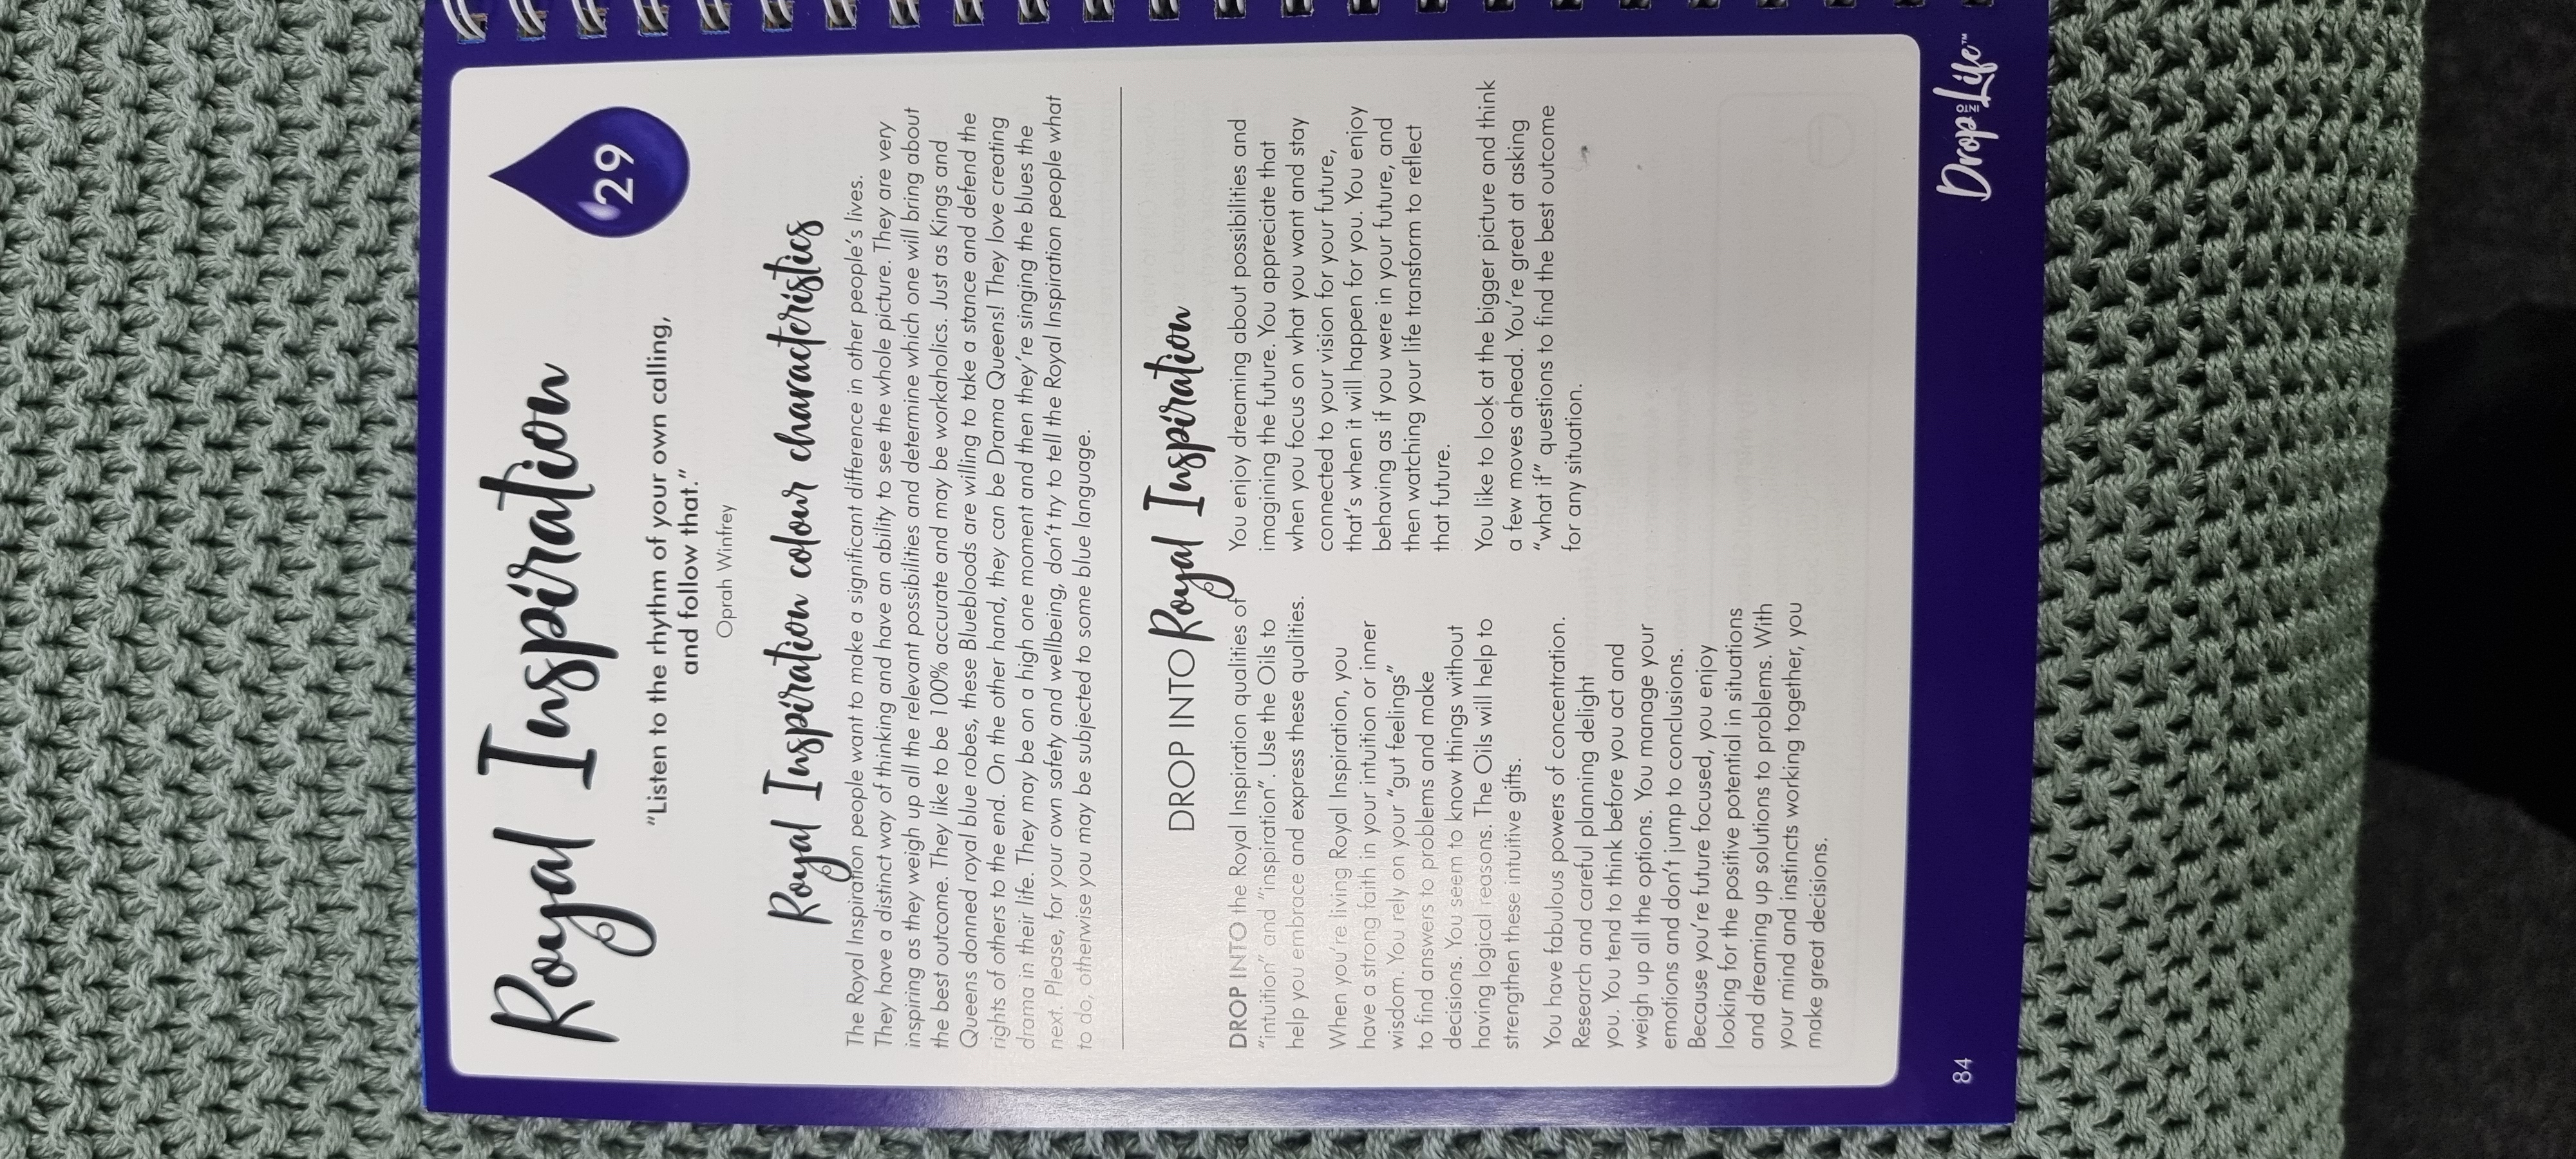 Royal Inspiration
29
“Listen to the rhythm of your own calling,
and follow that.”
Oprah Winfrey
Royal Inspiration colour characteristics
The Royal Inspiration people want to make a significant difference in other people’s lives.
They have a distinct way of thinking and have an ability to see the whole picture. They are very
inspiring as they weigh up all the relevant possibilities and determine which one will bring about
the best outcome. They like to be 100% accurate and may be workaholics. Just as Kings and
Queens donned royal blue robes, these Bluebloods are willing to take a stance and defend the
rights of others to the end. On the other hand, they can be Drama Queens! They love creating
drama in their life. They may be on a high one moment and then they’re singing the blues the
next. Please, for your own safety and wellbeing, don’t try to tell the Royal Inspiration people what
to do, otherwise you may be subjected to some blue language.
DROP INTO Royal Inspiration
DROP INTO the Royal Inspiration qualities of
“intuition” and “inspiration”. Use the Oils to
help you embrace and express these qualities.
When you’re living Royal Inspiration, you
have a strong faith in your intuition or inner
wisdom. You rely on your “gut feelings”
to find answers to problems and make
decisions. You seem to know things without
having logical reasons. The Oils will help to
strengthen these intuitive gifts.
You have fabulous powers of concentration.
Research and careful planning delight
you. You tend to think before you act and
weigh up all the options. You manage your
emotions and don’t jump to conclusions.
Because you’re future focused, you enjoy
looking for the positive potential in situations
and dreaming up solutions to problems. With
your mind and instincts working together, you
make great decisions.
You enjoy dreaming about possibilities and
imagining the future. You appreciate that
when you focus on what you want and stay
connected to your vision for your future,
that’s when it will happen for you. You enjoy
behaving as if you were in your future, and
then watching your life transform to reflect
that future.
You like to look at the bigger picture and think
a few moves ahead. You’re great at asking
“what if” questions to find the best outcome
for any situation.
84
Drop OIL IN Life™